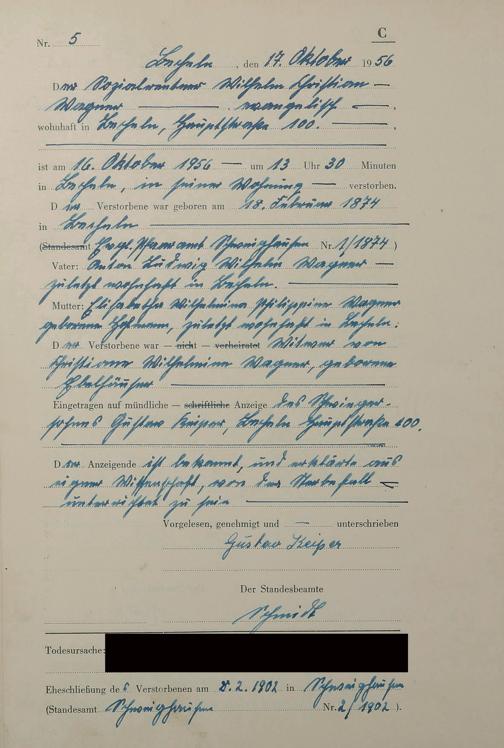 C
Nr. 5
Becheln, den 17. Oktober 1956
Der Sozialrentner Wilhelm Christian —
Wagner — evangelisch —.
wohnhaft in Becheln, Hauptstraße 100. —.
ist am 16. Oktober 1956 — um 13 Uhr 30 Minuten
in Becheln, in seiner Wohnung — verstorben.
Der Verstorbene war geboren am 18. Februar 1874
in Becheln —
(Standesamt Evgl. Pfarramt Schweighausen Nr. 1/1874)
Vater: Anton Ludwig Wilhelm Wagner —
zuletzt wohnhaft in Becheln.
Mutter: Elisabetha Wilhelmine Philippine Wagner
geborene Hofmann, zuletzt wohnhaft in Becheln.
Der Verstorbene war — nicht — verheiratet Witwer von
Christiane Wilhelmine Wagner, geborene
Ebelhäuser —
Eingetragen auf mündliche — schriftliche Anzeige des Schwieger-
sohnes Gustav Keiper, Becheln Hauptstraße 100.
Der Anzeigende ist bekannt, und erklärte aus
eigner Wissenschaft, von dem Sterbefall —
unterrichtet zu sein —
Vorgelesen, genehmigt und — unterschrieben
Gustav Keiper
Der Standesbeamte
Schmidt
Todesursache:
Eheschließung des Verstorbenen am 8.2.1902 in Schweighausen
(Standesamt Schweighausen Nr. 2/1902).